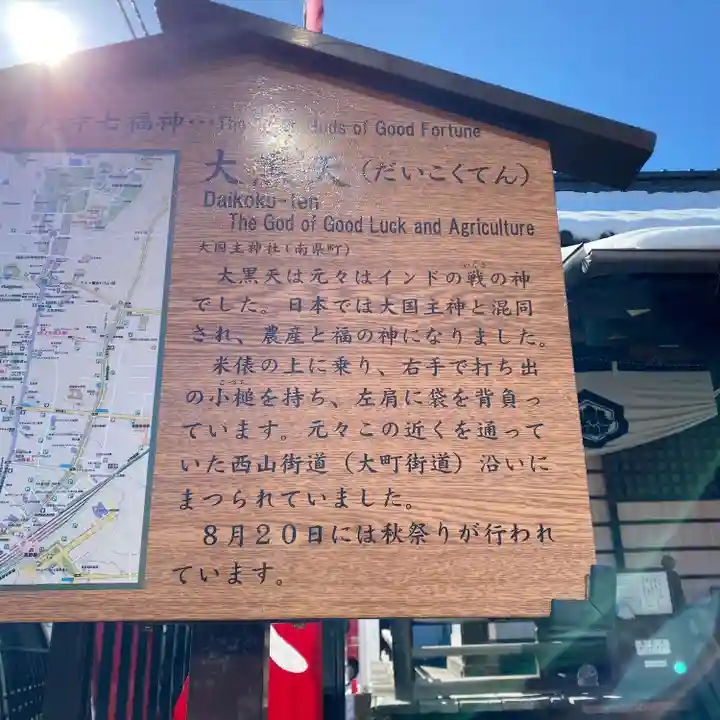 寺七福神…The Gods of Good Fortune
大黒天（だいこくてん）
Daikoku-ten
The God of Good Luck and Agriculture
大国主神社（南県町）
大黒天は元々はインドの戦の神
でした。日本では大国主神と混同
され、農産と福の神になりました。
米俵の上に乗り、右手で打ち出
の小槌を持ち、左肩に袋を背負っ
ています。元々この近くを通って
いた西山街道（大町街道）沿いに
まつられていました。
８月２０日には秋祭りが行われ
ています。